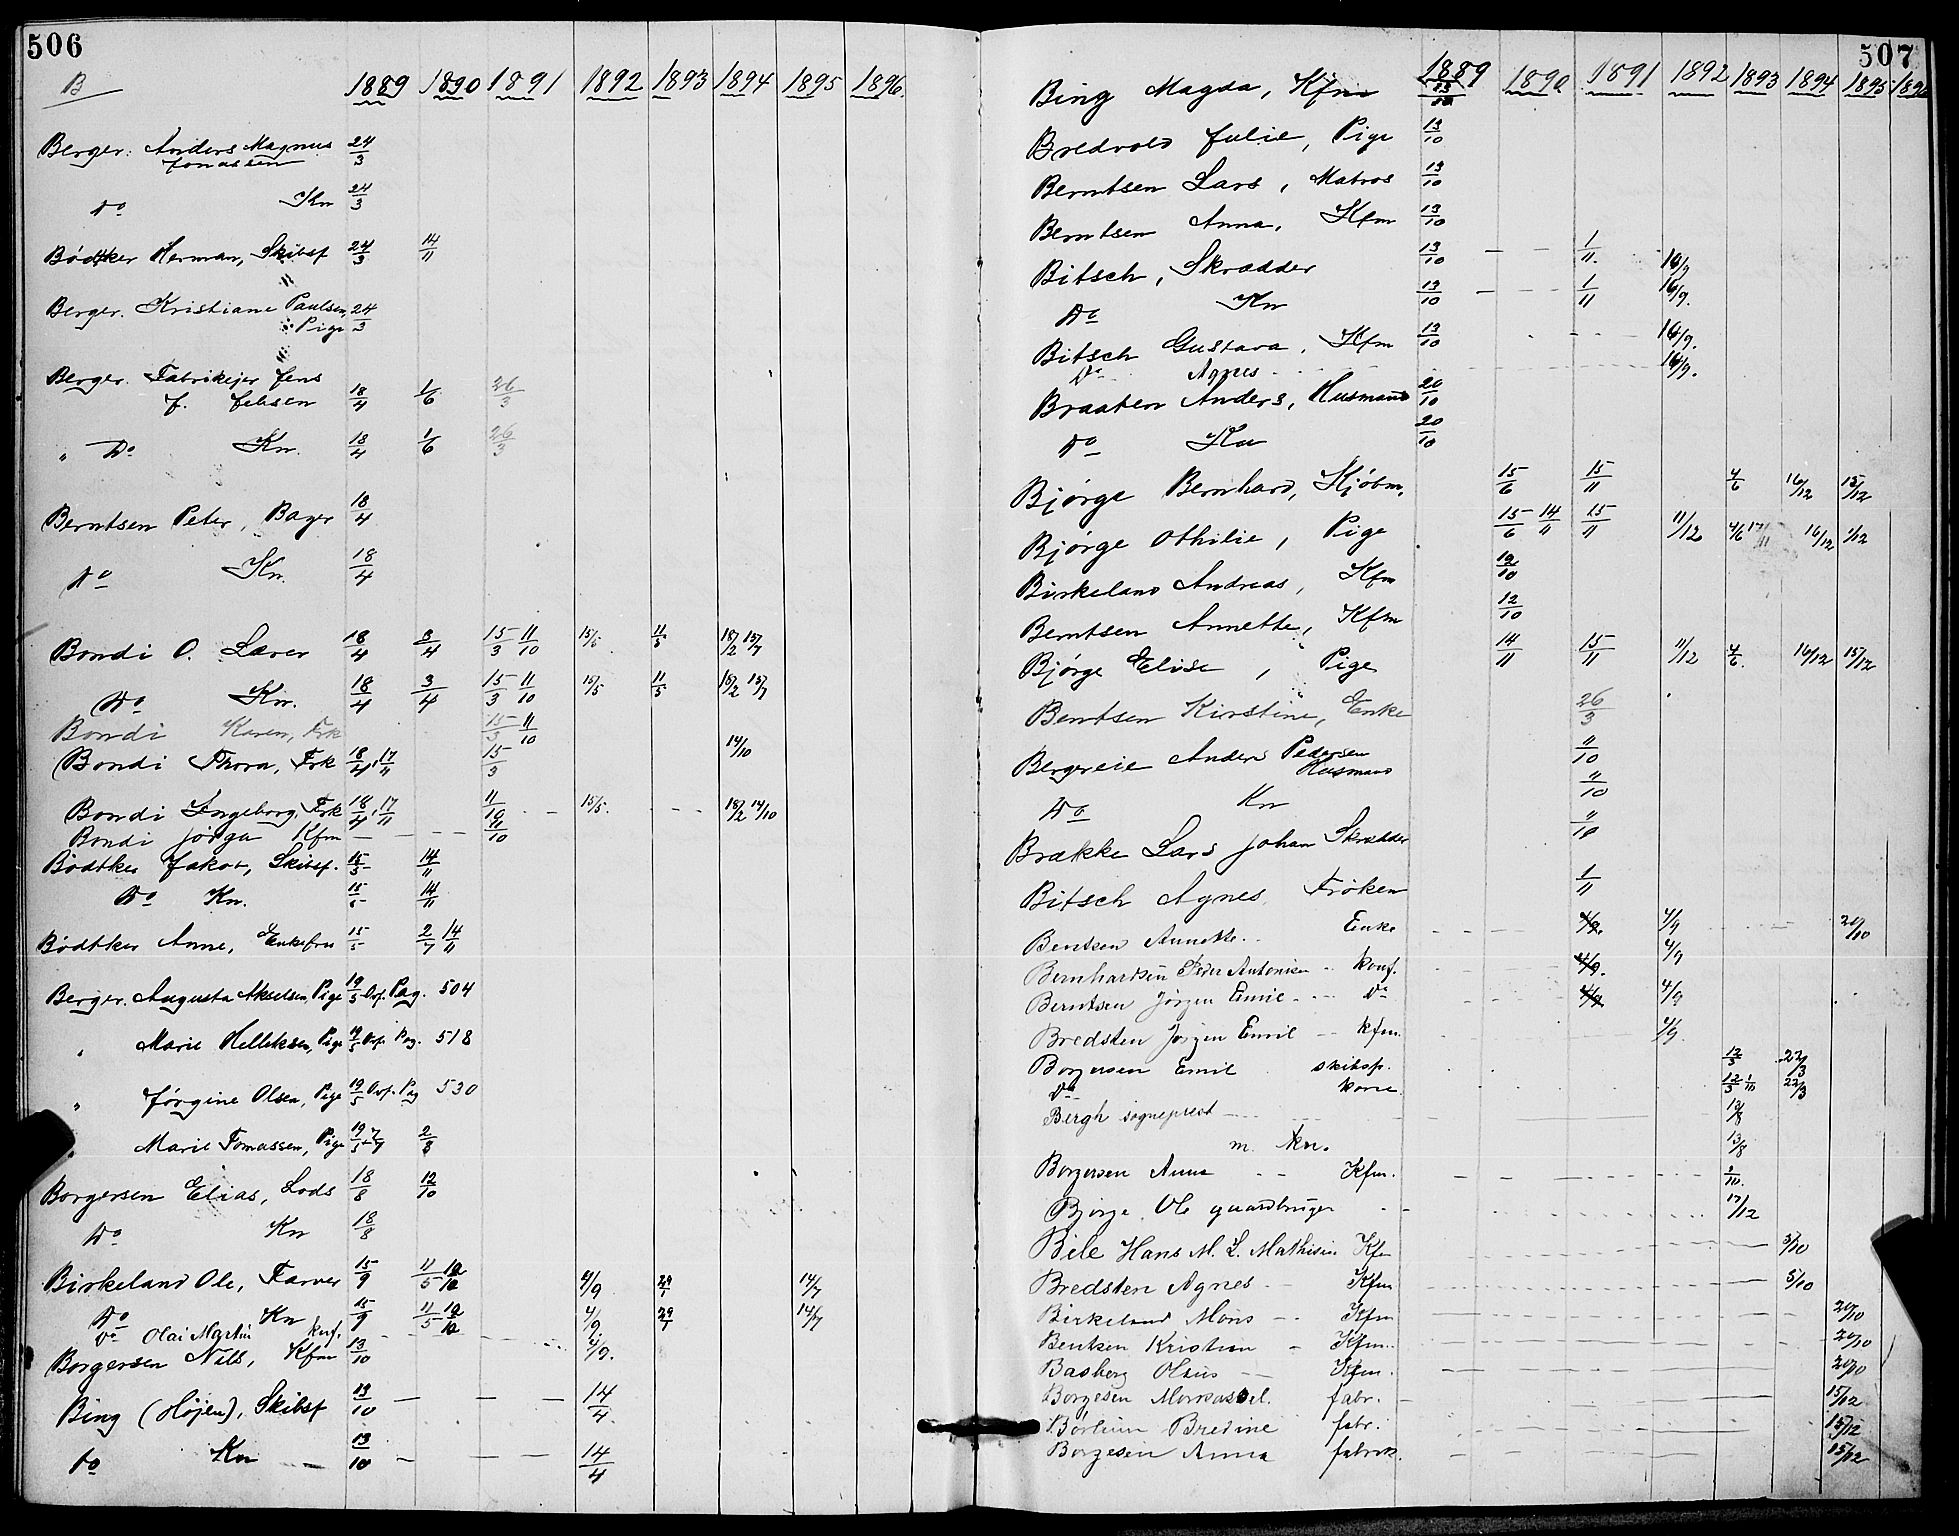 506
B 1889 1890 1891 1892 1893 1894 1895 1896.
Berger. Anders Magnus 24/3
Jonassen
Do Kn 24/3
Bødtker Herman, Skibsf 24/3 14/11
Berger. Kristiane Paulsen, 24/3
Pige
Berger. Fabrikejer Jens
J. Jebsen 18/4 1/6 26/3
" Do Kn. 18/4 1/6 26/3
Berntsen Peter, Bager 18/4
Do Kn. 18/4
Bondi O. Lærer 18/4 3/4 15/3 11/10 15/5 11/5 18/2 15/7
Do Kn. 18/4 3/4 15/3 11/10 15/5 11/5 18/2 15/7
Bondi Karen, Frk 15/3 11/10
Bondi Thora, Frk 18/4, 17/11 15/3 14/10
Bondi Ingeborg, Frk 18/4, 17/11 11/10 - - 15/5. - - - 18/2 14/10
Bondi Jørga Kfm - - - - 11/10
Bødtker Jakob, Skibsf. 15/5 - 14/11
Do Kn. 15/5 - 14/11
Bødtker Anne, Enkefru 15/5 2/7 14/11
Berger. Augusta Akselsen, Pige 19/5 Ovf. Pag. 504
" Marie Helleksen, Pige 19/5 Ovf. Pag. 518
" Jørgine Olsen, Pige 19/5 Ovf. Pag 530
" Marie Tomassen, Pige 19/5 7/7 2/8
Borgersen Elias, Lods 18/8 12/10
Do Kn 18/8
Birkeland Ole, Farver 15/9 11/5 12/10 4/9 29/1 14/7
Do Kn 15/9 11/5 12/10 4/9 29/1 14/7
Do Olai Martin konf. - - - - 4/9.
Borgersen Nils, Kfm 13/10
Bing (Højen), Skibsf 13/10 - - - 14/4
Do Kn 13/10 - - - 14/4
507
1889 1890 1891 1892 1893 1894 1895 1896
Bing Magda, Kfm 13/10
Bredvold Julie, Pige 13/10
Berntsen Lars, Matros 13/10
Berntsen Anna, Kfm 13/10
Bitsch, Skrædder 13/10 - - 1/11 16/9
Do Kn 13/10 - - 1/11 16/9.
Bitsch Gustava, Kfm 13/10 - - - 16/9.
Do Agnes - - - 16/9.
Braaten Anders, Husmand 20/10
Do Kn 20/10
Bjørge Bernhard, Kjøbm, 15/6 15/11 4/6 16/12 15/12
Bjørge Othilie, Pige 15/6 14/11 15/11 11/12 4/6 17/11 16/12 1/12
Birkeland Andreas, Kfm 12/10
Berntsen Annette, Kfm 12/10
Bjørge Elise, Pige 14/11 15/11 11/12 4/6. 16/12 15/12
Berntsen Kirstine, Enke 26/3
Bergereie Anders Pedersen 11/10
Husmand
Do Kn 11/10
Brække Lars Johan Skrædder 11/10
Bitsch Agnes, Frøken 1/11
Bentsen Annette. - Enke - - - 4/9. 4/9 - - - 20/10
Bernhardsen Peder Antonisen - konf. - - - 4/9. 4/9
Berntsen Jørgen Emil - - - Do - - - 4/9 4/9
Bredsten Jørgen Emil - - kfm. 4/9
Borgersen Emil skibsf. 12/3 22/3
Do kone. 12/3 1/10 22/3
Bergh sogneprest - - - 13/8
m. kn. 13/8
Borgersen Anna - - Kfm. - - - 9/10.
Bjørge, Ole gaardbruger - - - - 17/12
Bile Hans M. L. Mathisen Kfm - - - 5/10
Bredsten Agnes - - Kfm - - - 5/10
Birkeland Mons - - Kfm - - - 20/10
Bentsen Kristian - Kfm.. - - - 20/10
Basberg Olsus - - Kfm. - - - 20/10
Borgesen fabr. - - - 15/12
Bredine fabr. - - - 15/12
Borgesen Anna fabrik. - - - 15/12